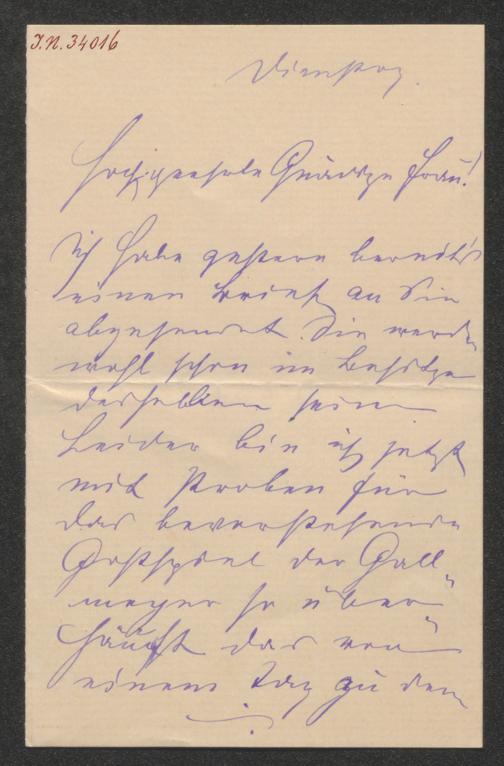 J.N. 34016
Dienstag.
Hochgeehrte Gnädige Frau!
Ich habe gestern bereits
einen Brief an Sie
abgesendet. Sie werden
wohl schon im Besitze
desselben sein
Leider bin ich jetzt
mit Proben für
das bevorstehende
Gastspiel der Gall-
meyer so über-
häuft das von
einem Tag zu dem